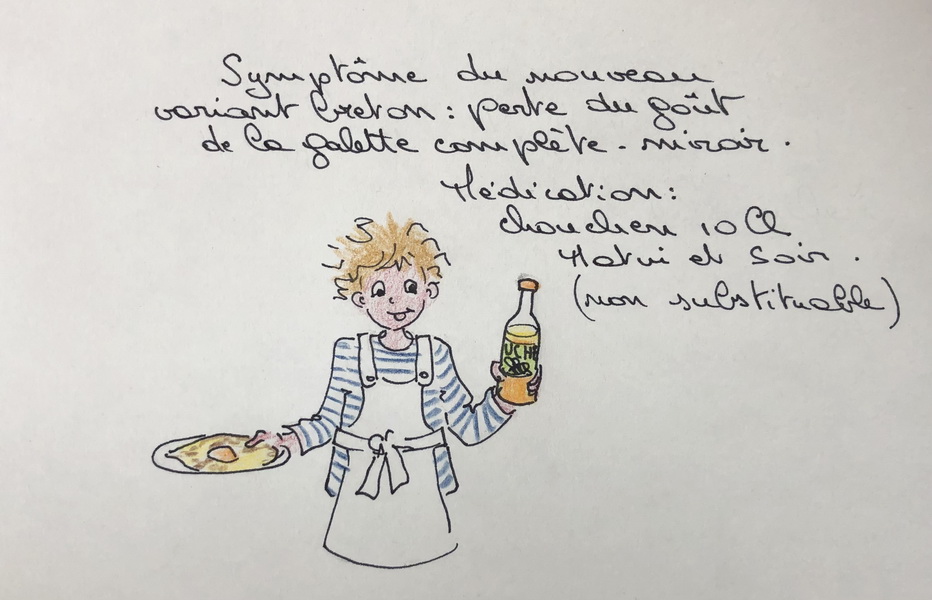 Symptôme du nouveau
variant breton : perte du goût
de la galette complète - miroir.
Médication :
chouchen 10 Cl
Matin et Soir.
(non substituable)
UCHE